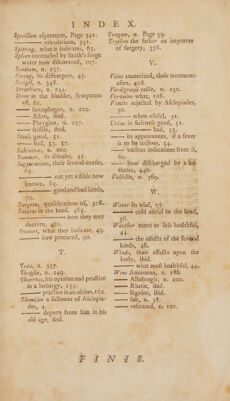 INDEX.
Speculum asperatum, Page 341.
—— oricularium, 351.
Spitting, what it indicates, 65.
Spleen extracted by Smith's forge
water how discovered, 207.
Spodium, n. 257.
Spring, its distempers, 45.
Squill, n. 346.
Struthium, n. 231.
Stone in the bladder, symptoms
of, 61.
—— sarcophagus, n. 229.
—— Asian, ibid.
—— Phrygian, n. 237.
—— fissile, ibid.
Stools good, 51.
—— bad, 53. 57.
Subrutine, n. 200.
Summer, its diseases, 45.
Suppurations, their several causes,
63.
—— not yet visible how
known, 64.
—— good and bad kinds,
70.
Surgeon, qualifications of, 378.
Sutures in the head, 465.
—— how they may
deceive, 461.
Sweats, what they indicate, 49.
—— how procured, 90.
T.
Teda, n. 357.
Thapsia, n. 249.
Tharrias, his opinion and practice
in a lethargy, 153.
—— practice in an ascites, 162.
Themison a follower of Asclepia-
des, 4
—— departs from him in his
old age, ibid.
Tragum, n. Page 99.
Tryphon the father an improver
of surgery, 378.
V.
Veins cauterized, their treatment
after, 408.
Verdigrease rasile, n. 252.
Veratrum white, 108.
Vomits rejected by Asclepiades,
30.
—— when useful, 31.
Urine in sickness good, 51.
—— bad, 53.
—— its appearances, if a fever
is to be tedious, 54.
—— various indications from it,
60.
—— how discharged by a ca-
theter, 440.
Vulsella, n. 369.
W.
Water its trial, 27.
—— cold useful to the head,
36.
Weather more or less healthful,
44.
—— the effects of the several
kinds, 46.
Winds, their effects upon the
body, ibid.
—— what most healthful, 44.
Wine Aminaean, n. 186.
—— Allobrogic, n. 200.
—— Rhetic, ibid.
—— Signine, ibid.
—— salt, n. 38.
—— resinated, n. 101.
FINIS.